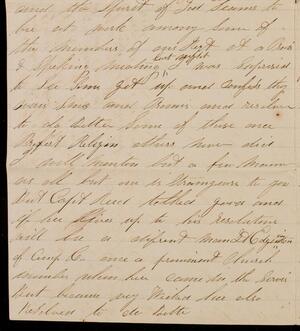 and the Spirit of God seems to
be at work among some of
the members of our Regt at a Pray
& Speaking meeting last night I was surprised
to see some get up and confess they
ware siners and Promis and resolve
to do better some of those once
Profest Religion others never did
I will mention but a few Names
as all but one is Strangeure to you
but Capt talked good and
if hee lives up to his resolution
will be a diferent man Lt
of Comp C once a prominent Church
member when hee came in the Servis
but became very Wicked hee also
resolved to do better